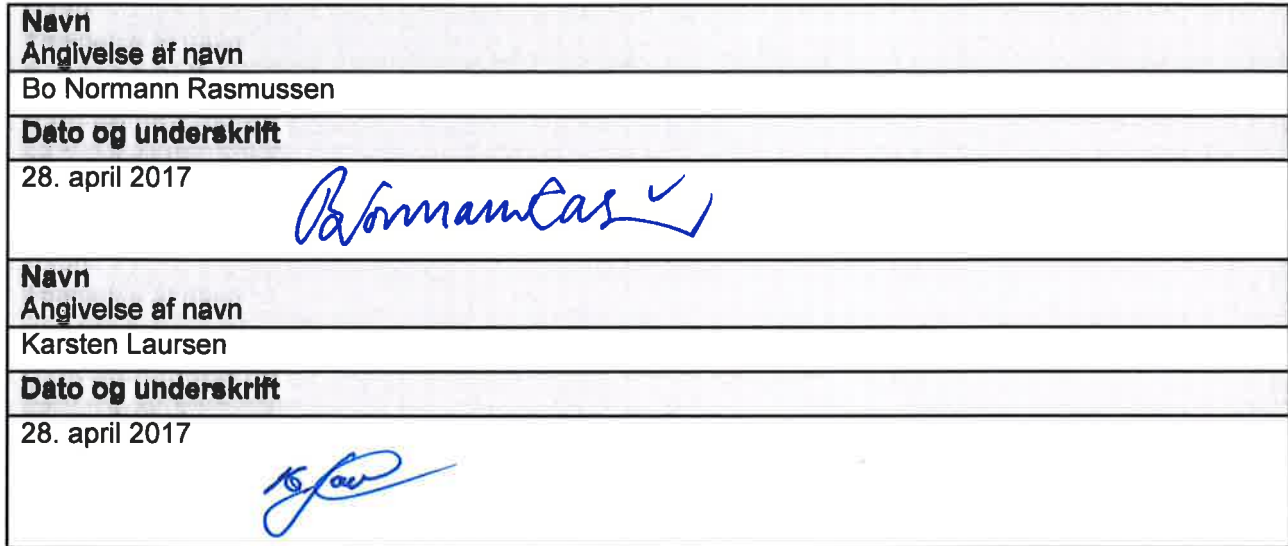 Navn
Angivelse af navn
Bo Normann Rasmussen
Dato og underskrift
28. april 2017
Navn
Angivelse af navn
Karsten Laursen
Dato og underskrift
28. april 2017